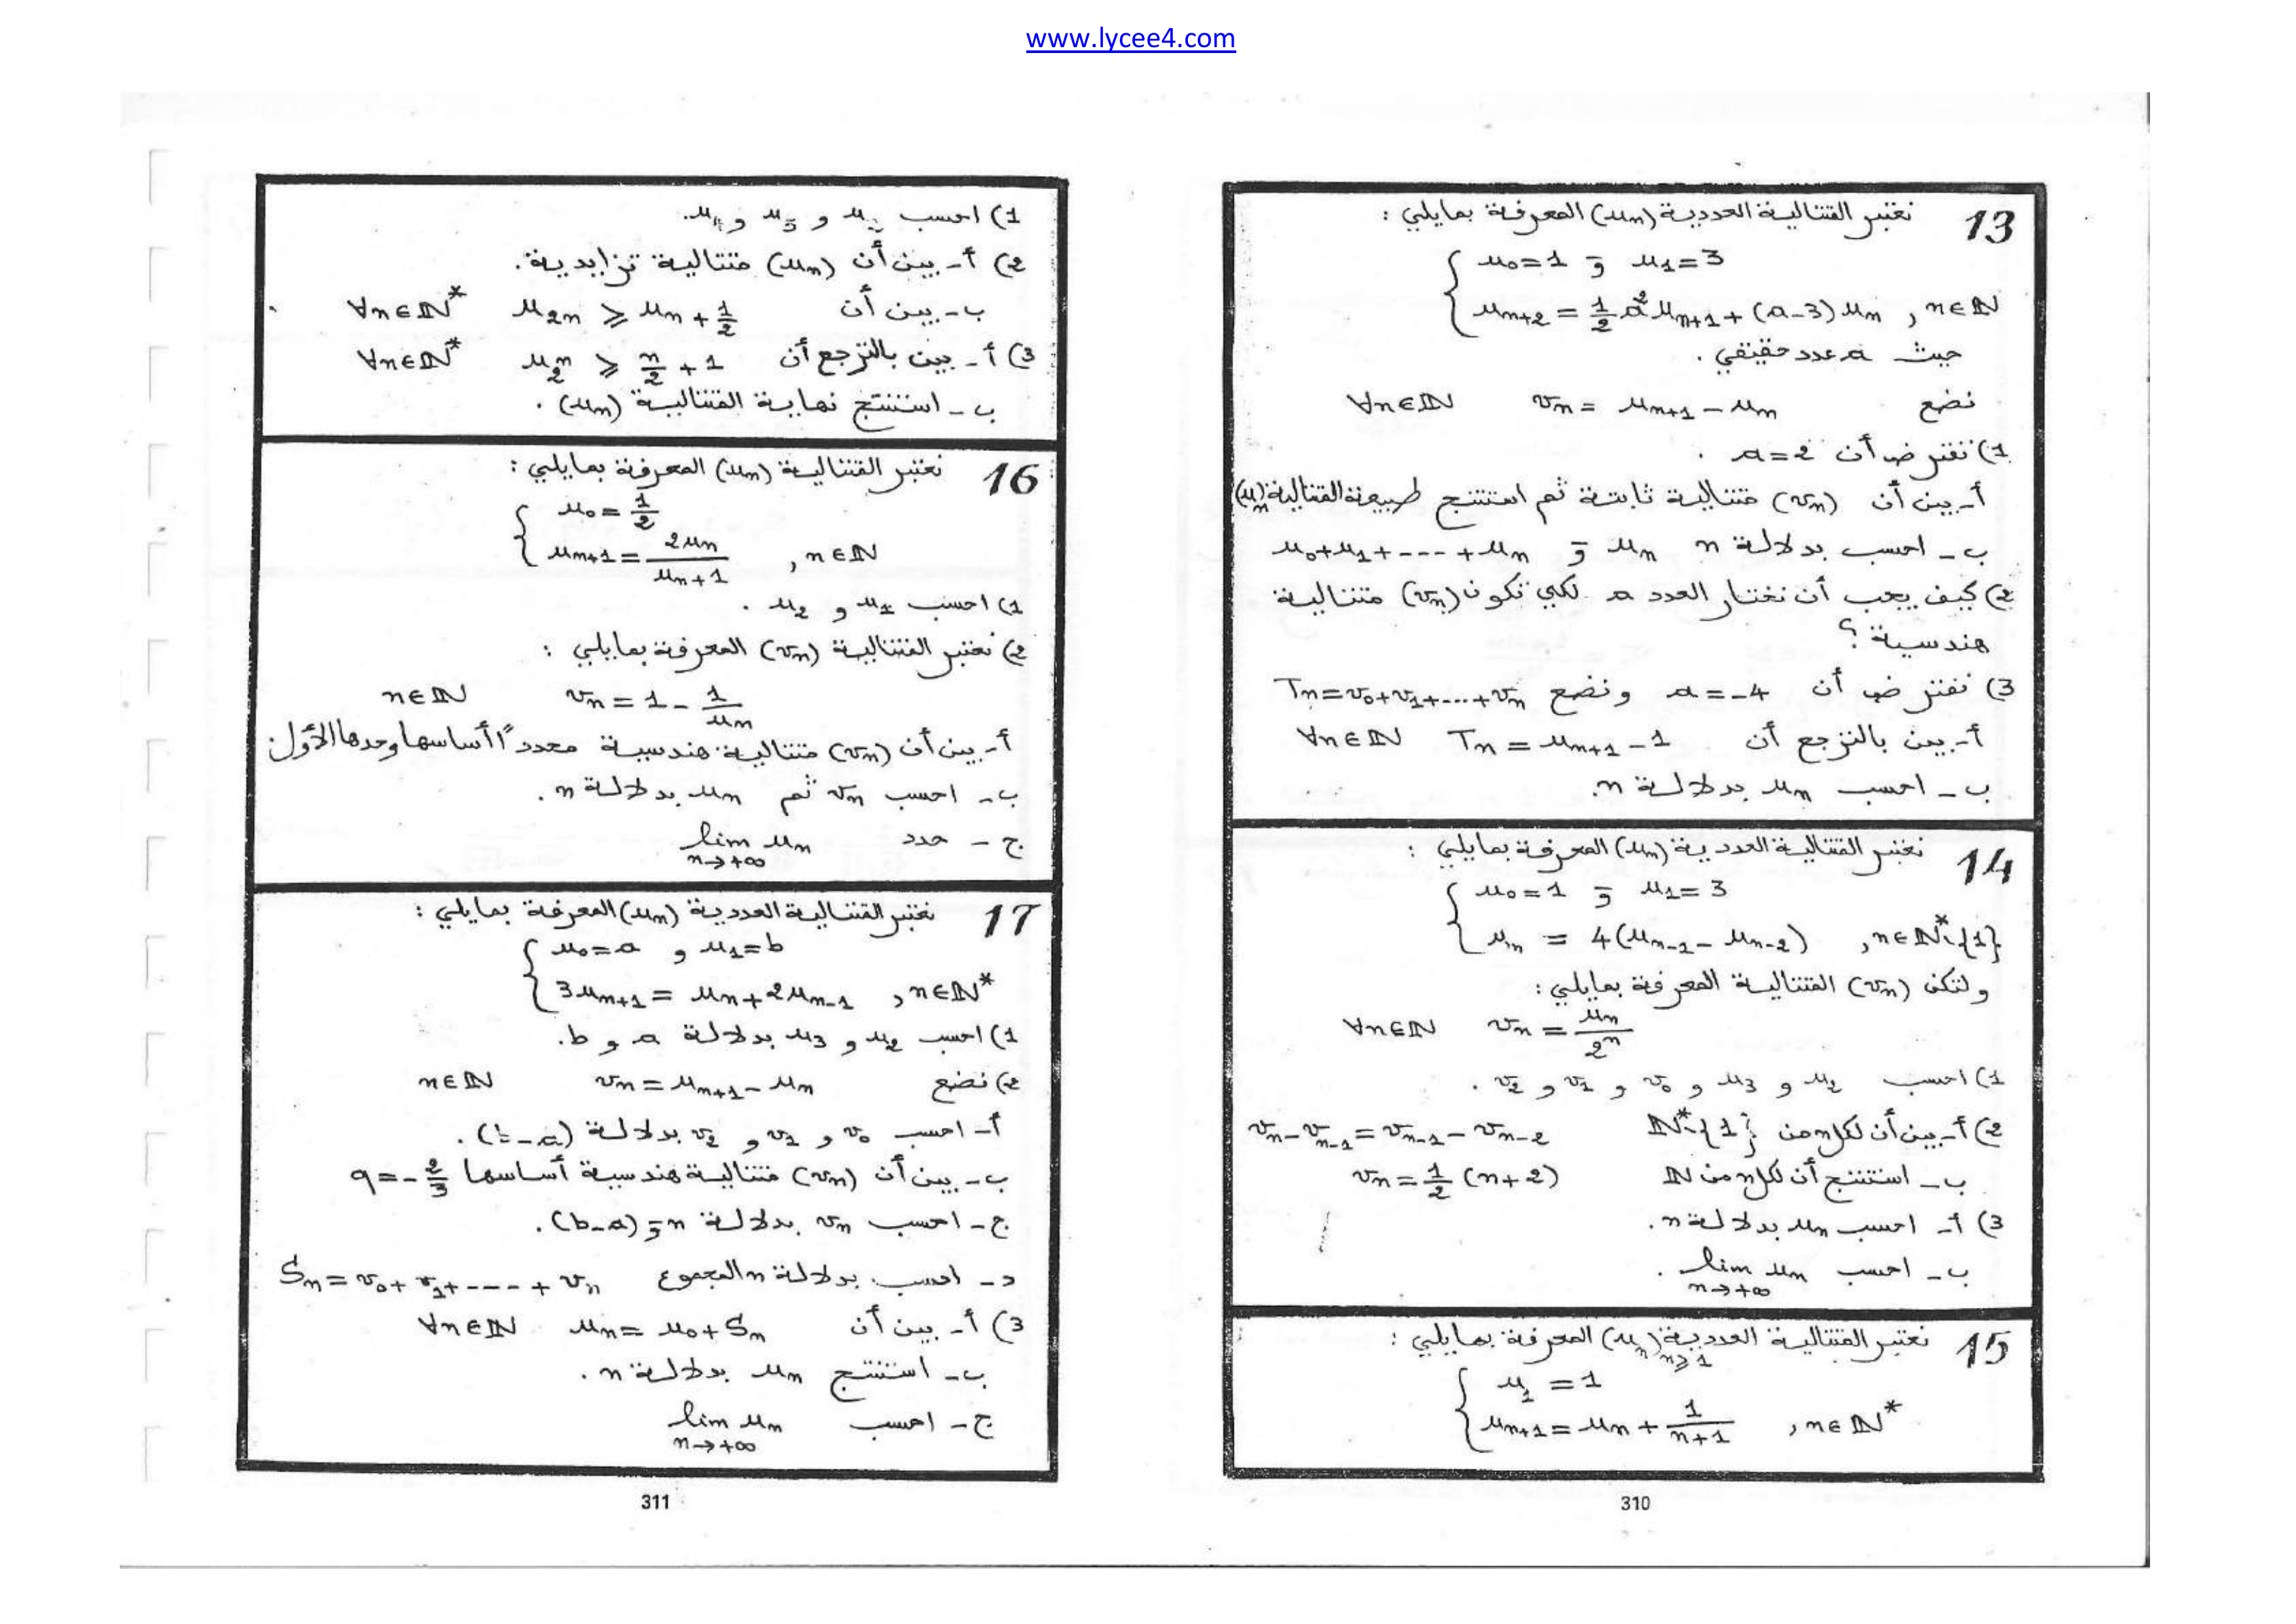 www.lycee4.com
13 نعتبر المتتالية العددية (uₙ) المعرفة بمايلي :
{ u₀ = 1 و u₁ = 3
uₙ₊₂ = 1/2 a² uₙ₊₁ + (a-3) uₙ , n ∈ ℕ
حيث a عدد حقيقي .
نضع vₙ = uₙ₊₁ - uₙ ∀n∈ℕ
1) نفترض أن a = 2 .
أ- بين أن (vₙ) متتالية ثابتة ثم استنتج طبيعة المتتالية (uₙ)
ب- احسب بدلالة n uₙ و u₀+u₁+----+uₙ
2) كيف يجب أن نختار العدد a لكي تكون (vₙ) متتالية
هندسية ؟
3) نفترض أن a = -4 ونضع Tₙ = v₀+v₁+...+vₙ
أ- بين بالترجع أن Tₙ = uₙ₊₁ - 1 ∀n∈ℕ
ب- احسب uₙ بدلالة n.
14 نعتبر المتتالية العددية (uₙ) المعرفة بمايلي :
{ u₀ = 1 و u₁ = 3
uₙ = 4(uₙ₋₁ - uₙ₋₂) , n∈ℕ*\{1}
ولتكن (vₙ) المتتالية المعرفة بمايلي :
∀n∈ℕ vₙ = uₙ/2ⁿ
1) احسب u₂ و u₃ و v₀ و v₁ و v₂ .
2) أ- بين أن لكل n من ℕ*\{1} vₙ - vₙ₋₁ = vₙ₋₁ - vₙ₋₂
ب- استنتج أن لكل n من ℕ vₙ = 1/2 (n+2)
3) أ- احسب uₙ بدلالة n.
ب- احسب lim uₙ n→+∞ .
15 نعتبر المتتالية العددية (uₙ)n≥1 المعرفة بمايلي :
{ u₁ = 1
uₙ₊₁ = uₙ + 1/(n+1) , n∈ℕ*
310
1) احسب u₂ و u₃ و u₄.
2) أ- بين أن (uₙ) متتالية تزايدية.
ب- بين أن u₂ₙ ≥ uₙ + 1/2 ∀n∈ℕ*
3) أ- بين بالترجع أن u_{2ⁿ} ≥ n/2 + 1 ∀n∈ℕ*
ب- استنتج نهاية المتتالية (uₙ) .
16 نعتبر المتتالية (uₙ) المعرفة بمايلي :
{ u₀ = 1/2
uₙ₊₁ = 2uₙ/(uₙ+1) , n∈ℕ
1) احسب u₁ و u₂ .
2) نعتبر المتتالية (vₙ) المعرفة بمايلي :
vₙ = 1 - 1/uₙ n∈ℕ
أ- بين أن (vₙ) متتالية هندسية محددًا أساسها وحدها الأول.
ب- احسب vₙ ثم uₙ بدلالة n.
ج- حدد lim uₙ n→+∞
17 نعتبر المتتالية العددية (uₙ) المعرفة بمايلي :
{ u₀ = a و u₁ = b
3uₙ₊₁ = uₙ + 2uₙ₋₁ , n∈ℕ*
1) احسب u₂ و u₃ بدلالة a و b.
2) نضع vₙ = uₙ₊₁ - uₙ n∈ℕ
أ- احسب v₀ و v₁ و v₂ بدلالة
ب- بين أن (vₙ) متتالية هندسية أساسها q = -2/3
ج- احسب vₙ بدلالة n و (b-a).
د- احسب بدلالة n المجموع Sₙ = v₀ + v₁ + ---- + vₙ
3) أ- بين أن uₙ = u₀ + Sₙ ∀n∈ℕ
ب- استنتج uₙ بدلالة n .
ج- احسب lim uₙ n→+∞
311